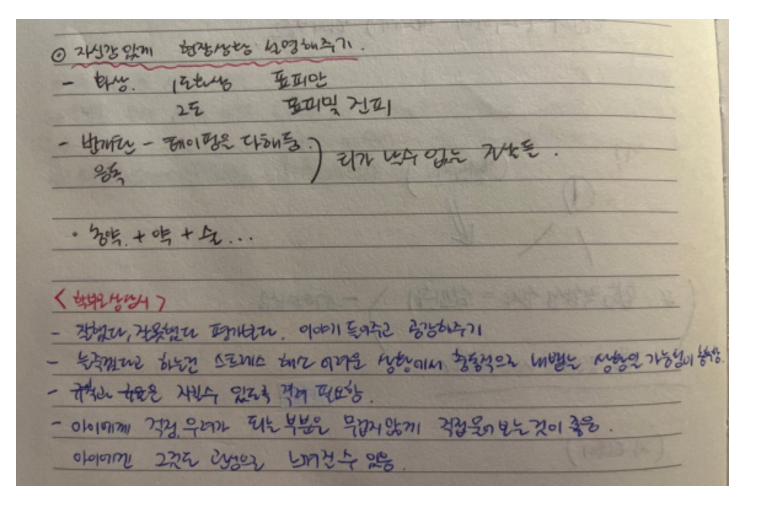 ⊙ 자신감 있게 현장상황 설명해주기.
- 화상. 1도화상 표피만
2도 표피및 진피
- 반깁스 - 테이핑은 다해둠.
) 티가 날수 없는
· 농약. + 약 + 술...
<학부모상담시>
- 잘했다, 잘못했다 평가보다. 이야기 들어주고 공감해주기
- 늘죽겠다고 하는건 스트레스 해소 어려운 상황에서 충동적으로 내뱉는 상황일 가능성이
- 규칙과 규율은 지킬수 있도록 격려 필요함.
- 아이에게 걱정, 우려가 되는 부분은 무겁지않게 직접물어보는것이 좋음.
아이에겐 그것도 관심으로 느껴질수 있음.